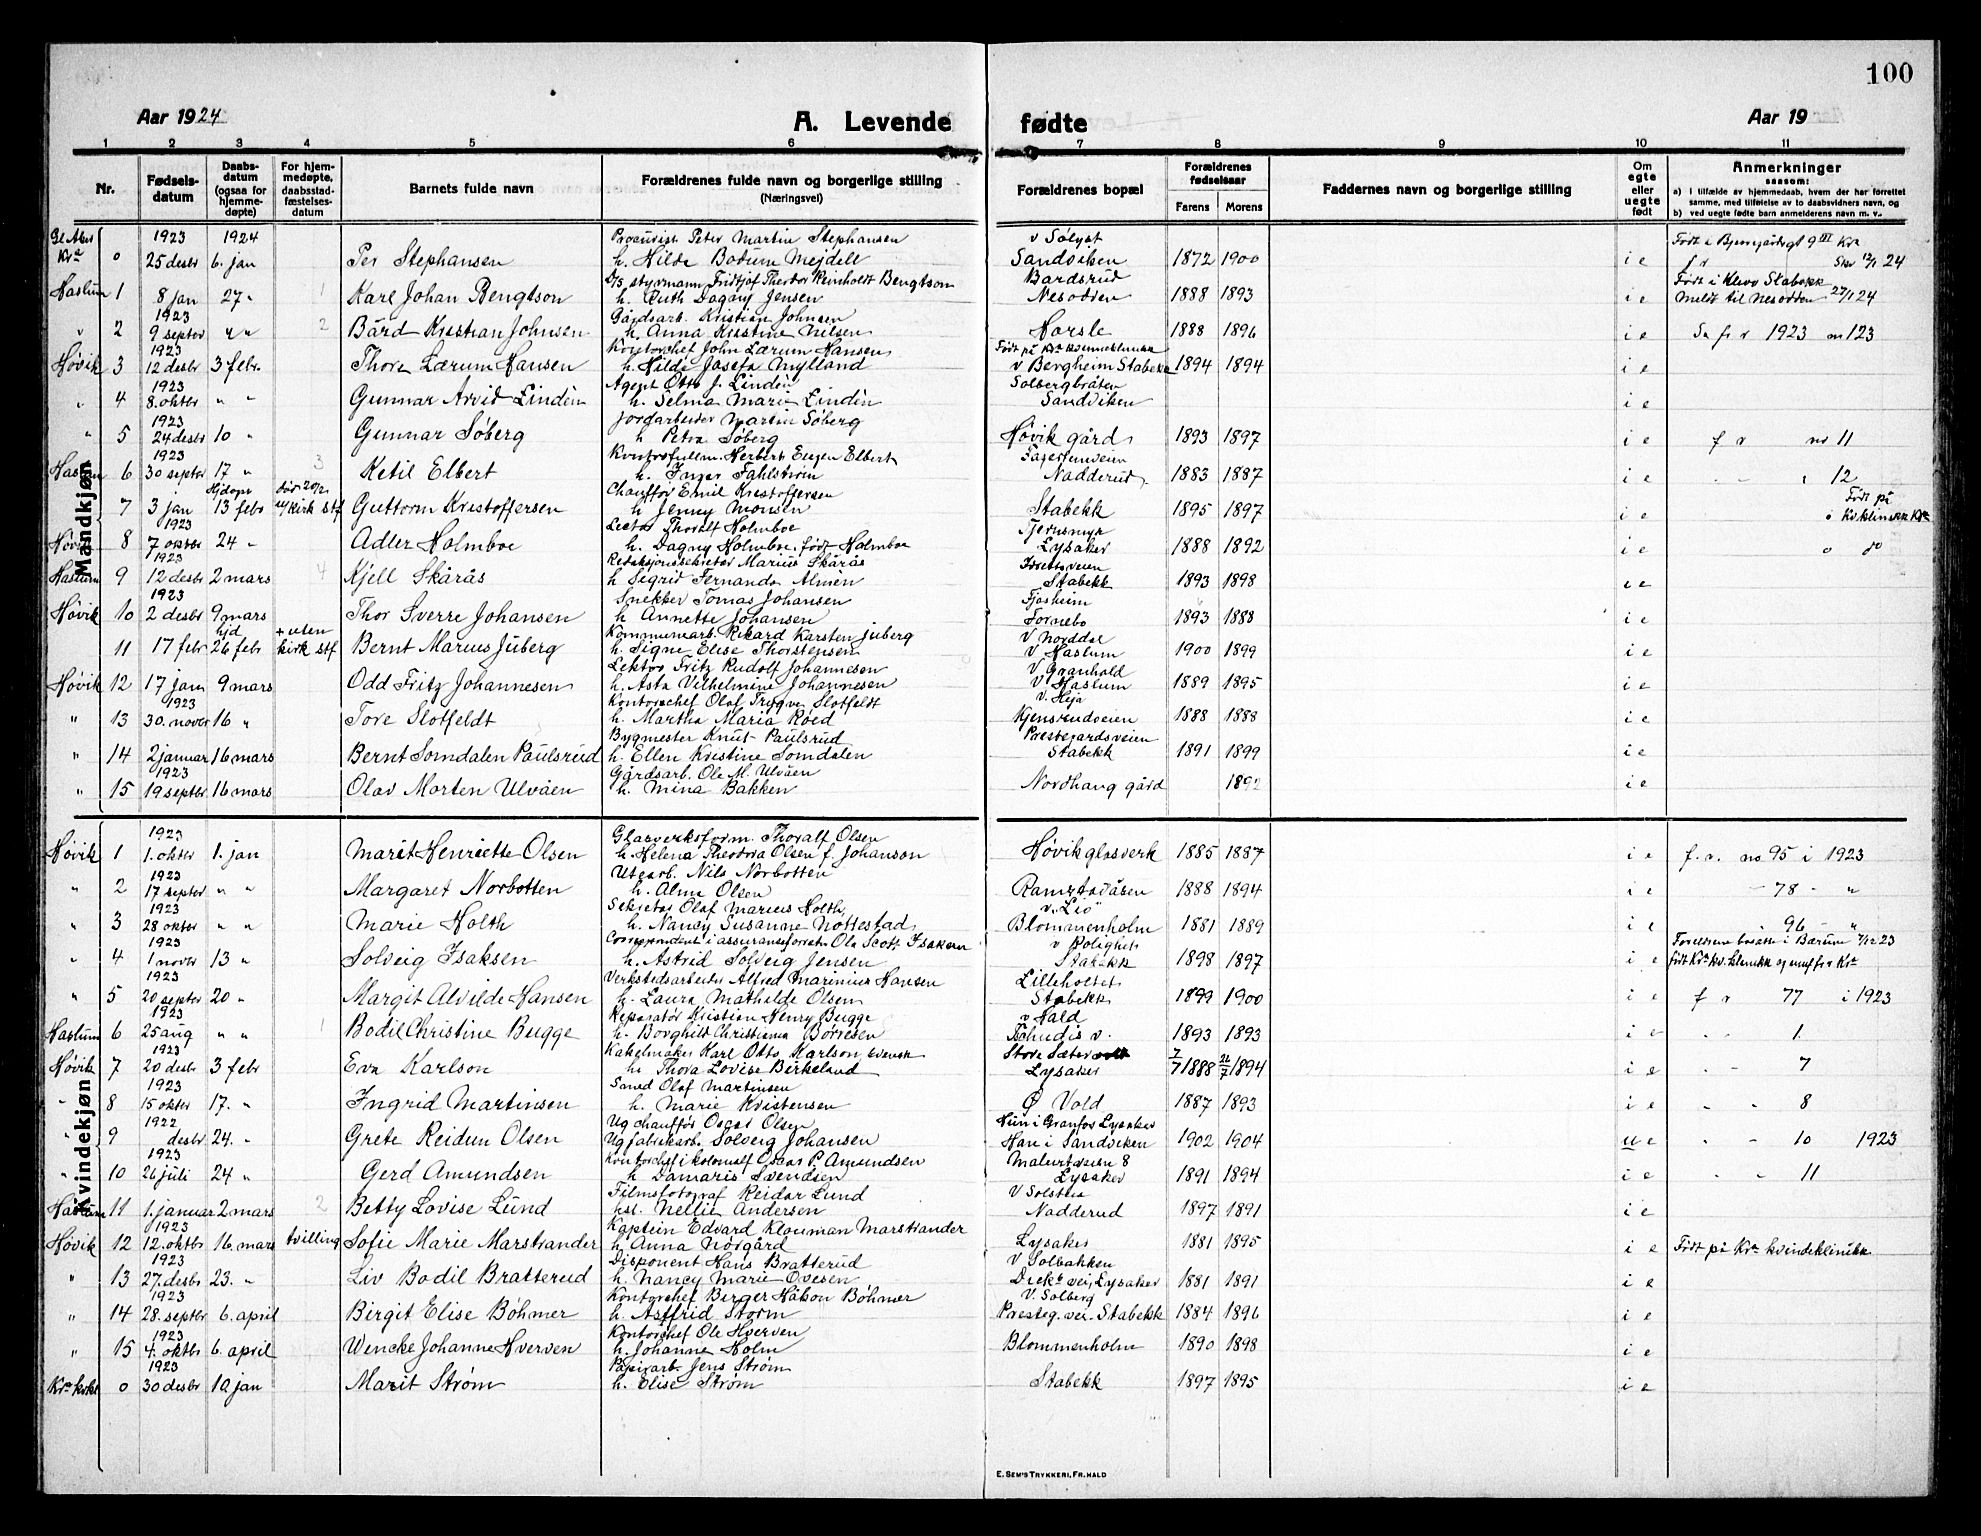 100
Aar 1924
A. Levende fødte
Aar 19
1 2 3 4 5 6 7 8 9 10 11
Nr.
Fødsels-
datum
Daabs-
datum
(ogsaa for
hjemme-
døpte)
For hjem-
medøpte,
daabsstad-
fæstelses-
datum
Barnets fulde navn
Forældrenes fulde navn og borgerlige stilling
(Næringsvei)
Forældrenes bopæl
Forældrenes
fødselsaar
Farens Morens
Faddernes navn og borgerlige stilling
Om
egte
eller
uegte
født
Anmerkninger
saasom:
a) i tilfælde av hjemmedaab, hvem der har forrettet
samme, med tilføielse av to daabsvidners navn, og
b) ved uegte fødte barn anmelderens navn m. v.
Mandkjøn
Gl. Aker 1923 1924 Procurist Peter Martin Stephansen v Sølyst
Kra 0 25 desbr 6. jan Per Stephansen h. Hilde Bodum Mejdell Sandviken 1872 1900 i e
24
D/s styrmann Fridtjof Theodor Reinholdt Bengtson Bardsrud Født i Klevo Stabekk
Haslum 1 8 jan 27 " 1 Karl Johan Bengtson h. Ruth Dagny Jensen Nesodden 1888 1893 i e meldt til Nesodden 27/1 24
1923 Gårdsarb. Kristian Johnsen
" 2 9 septbr " " 2 Bård Kristian Johnsen h. Anna Kristine Nilsen Horsle 1888 1896 i e Se f r 1923 nr 123
1923 Kontorchef John Lærum Hansen Født på Kra kvinneklinikk
Høvik 3 12 desbr 3 febr. Thore Lærum Hansen h. Hilde Josefa Mylland v Bergheim Stabekk 1894 1894 i e
1923 Agent Otto J. Lindén Solbergbråten
" 4 8. oktbr " " Gunnar Arvid Lindén h. Selma Marie Lindén Sandviken i e
1923 Jordarbeider Martin Søberg
" 5 24 desbr 10 " Gunnar Søberg h Petra Søberg Høvik gård 1893 1897 i e f r nr 11
1923 Kontorfullm. Herbert Eugen Elbert
Haslum 6 30 septbr 17 " 3 Ketil Elbert h. Inger Fahlstrøm Nadderud 1883 1887 i e " 12
Hjdøpt død 20/2 Chauffør Emil Kristoffersen Født på
7 3 jan 13 febr u/kirk stf Guttorm Kristoffersen h Jenny Monsen Stabekk 1895 1897 i e Kv klinikk Kra
1923 Lector Thoralf Holmboe Tjernsmyr
Høvik 8 7 oktbr 24 " Adler Holmboe h. Dagny Holmboe, født Holmboe Lysaker 1888 1892 i e
1923 Redaksjonssekretær Marius Skårås Idrettsveien
Haslum 9 12 desbr 2 mars 4 Kjell Skårås h Sigrid Fernanda Almén Stabekk 1893 1898 i e
1923 Snekker Tomas Johansen Fjosheim
Høvik 10 2 desbr 9 mars Thor Sverre Johansen h Annette Johansen Fornebo 1893 1888 i e
hjd + uten Kommunearb. Rikard Karsten Juberg V Norddal
11 17 febr 26 febr kirk stf Bernt Marius Juberg h. Signe Elise Thorstensen V Haslum 1900 1899 i e
Lektor Fritz Rudolf Johannesen V Granhold
Høvik 12 17 jan 9 mars Odd Fritz Johannesen h. Asta Vilhelmine Johannesen V Haslum 1889 1895 i e
1923 Kontorchef Olaf Trygve Slotfeldt v. Heja
" 13 30. novbr 16 " Tore Slotfeldt h. Martha Maria Røed Kjensrudveien 1888 1888 i e
Bygmester Knut Paulsrud Prestegardsveien
" 14 2 januar 16 mars Bernt Somdalen Paulsrud h. Ellen Kristine Somdalen Stabekk 1891 1899 i e
1923 Gårdsarb. Ole M. Ulvåen
" 15 19 septbr 16 mars Olav Morten Ulvåen h. Mina Bakken Nordhaug gård 1892 i e
Kvindekjøn
1923 Glasverksform. Thoralf Olsen
Høvik 1 1. oktbr 1. jan Marit Henriette Olsen h. Helena Theodora Olsen f. Johanson Høvik glasverk 1885 1887 i e f. r. no 95 i 1923
1923 Utearb. Nils Norbotten
" 2 17 septbr " " Margaret Norbotten h. Alma Olsen Ramstadåsen 1888 1894 i e - 78 - "
1923 Sekretær Olaf Marius Holth v. "Lio"
" 3 28 oktbr " " Marie Holth h. Nancy Susanne Nottestad Blommenholm 1881 1889 i e - 96 - "
1923 Correspondent i assuranseforretn. Ole Scott Isaksen v Bolighet Foreldrene bosatte i Bærum
" 4 1 novbr 13 " Solveig Isaksen h. Astrid Solveig Jensen Stabekk 1898 1897 i e
1923 Verkstedsarbeider Alfred Marinius Hansen Lilleholtet
" 5 20 septbr 20 " Margit Alvilde Hansen h. Laura Mathilde Olsen Stabekk 1899 1900 i e f r 77 i 1923
1923 Reparatør Kristian Henry Bugge v Hald
Haslum 6 25 aug " " 1 Bodil Christine Bugge h. Borghild Christiania Børresen Tschudis v. 1893 1893 i e " - 1
1923 Kakelmaker Karl Otto Karlson, svensk Store Sæter
Høvik 7 20 desbr 3 febr Eva Karlson h. Thora Lovise Birkeland Lysaker 1888 1894 i e " - 7
1923 Smed Olaf Martinsen
" 8 15 oktbr 17. " Ingrid Martinsen h. Marie Kristensen Ø Vold 1887 1893 i e " " 8
1922 Ug chauffør Oscar Olsen Hun i Granfos Lysaker
" 9 desbr 24. " Grete Reidun Olsen Ug fabrikarb. Solveig Johansen Han i Sandviken 1902 1904 u e " - 10 1923
1923 Kontorchef i kolonialf Oscar P. Amundsen Malurtveien 8
" 10 26 juli 24 " Gerd Amundsen h Damaris Svendsen Lysaker 1891 1894 i e " " 11
Filmfotograf Reidar Lund V Solstua
Haslum 11 1. januar 2 mars 2 Betty Lovise Lund hst. Nellie Andersen Nadderud 1897 1891 i e
1923 Kaptein Edvard Klouman Marstrander
Høvik 12 12. oktbr 16. mars tvilling Sofie Marie Marstrander h. Anna Nørgård Lysaker 1881 1895 i e Født på Kra kvindeklinikk
1923 Disponent Hans Bratterud V Solbakken
" 13 27. desbr 23. " Liv Bodil Bratterud h. Nancy Marie Ovesen Dick's vei, Lysaker 1881 1891 i e
1923 Kontorchef Berger Håkon Böhmer V. Solberg
" 14 28. septbr 6. april Birgit Elise Böhmer h. Astfrid Storm Presteg. vei. Stabekk 1884 1896 i e
1923 Kontorchef Ole Hverven
" 15 4. oktbr 6. april Wencke Johanne Hverven h. Johanne Holm Blommenholm 1890 1898 i e
1923 Papirarb. Jens Strøm
0 30 desbr 10 jan Marit Strøm h. Elise Strøm Stabekk 1897 1895 i e
E. SEM'S TRYKKERI, FR.HALD